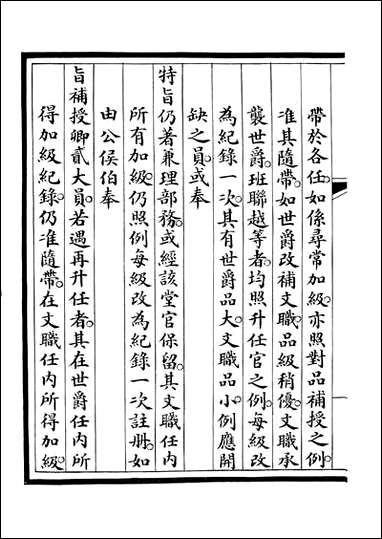 帶於各任。如係尋常加級。亦照對品補授之例。
准其隨帶。如世爵改補文職。品級稍優。文職承
襲世爵。班聯越等者。均照升任官之例。每級改
為紀錄一次。其有世爵品大。文職品小。例應開
缺之員。或奉
特旨仍著兼理部務。或經該堂官保留。其文職任內
所有加級。仍照例每級改為紀錄一次註冊。如
由公侯伯奉
旨補授卿貳大員。若遇再升任者。其在世爵任內所
得加級紀錄。仍准隨帶。在文職任內所得加級。